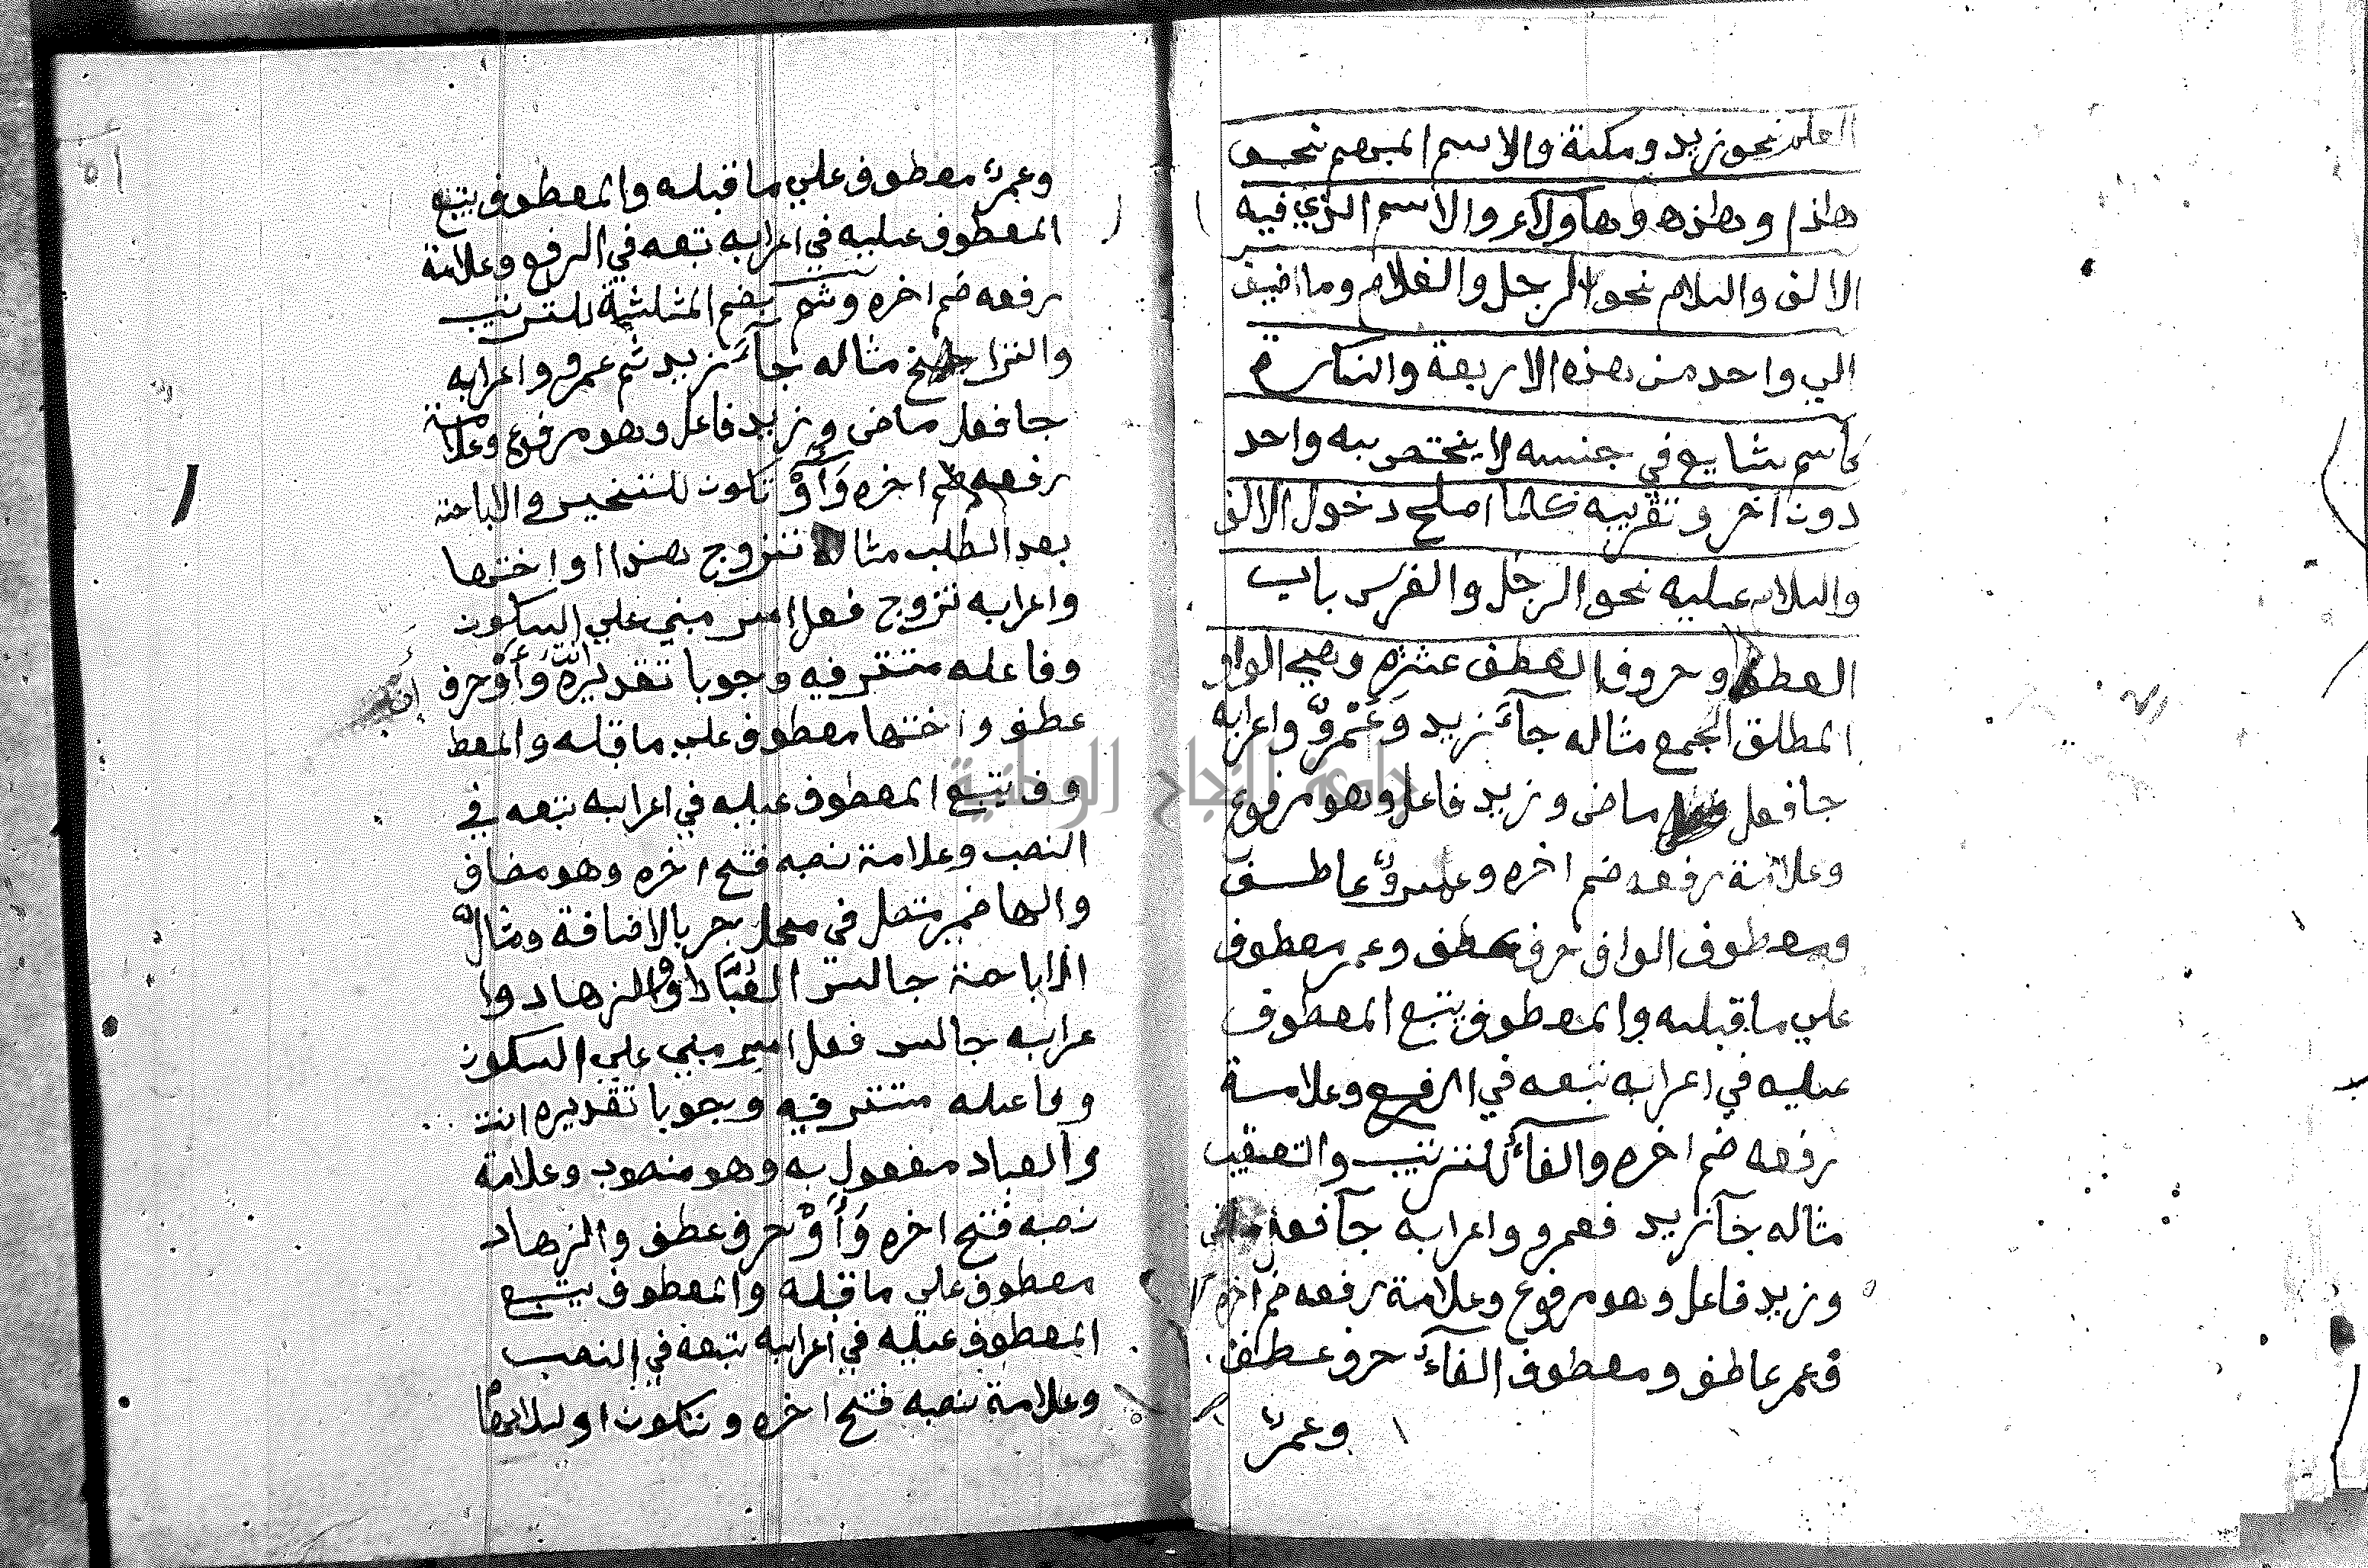 العلم نحو زيد ومكة والاسم المبهم نحو
هاذا وهاذه وهاولاء والاسم الذي فيه
الالف واللام نحو الرجل والغلام وما اضيف
الي واحد من هذه الاربعة والنكرة
كل اسم شايع في جنسه لا يختص به واحد
دون اخر وتقريبه كلما اصلح دخول الالف
واللام عليه نحو الرجل والفرس باب
العطف وحروف العطف عشرة وهي الواو
المطلق الجمع مثاله جآء زيد وَعَمْرٌو واعرابه
جا فعل ماضي وزيد فاعل وهو مرفوع
وعلامة رفعه ضم اخره وعمرو عاطف
ومعطوف الواو حرف عطف وعمر معطوف
علي ما قبله والمعطوف يتبع المعطوف
عليه في اعرابه تبعه في الرفع وعلامة
رفعه ضم اخره والفآء للترتيب والتعقيب
مثاله جآ زيد فعمرو واعرابه جآ فعل ماضي
وزيد فاعل وهو مرفوع وعلامة رفعه ضم اخره
فعمر عاطف ومعطوف الفآء حرف عطف
وعمرٌ
٥١
وعمرٌ معطوف علي ما قبله والمعطوف يتبع
المعطوف عليه في اعرابه تبعه في الرفع وعلامة
رفعه ضم اخره وثم بضم المثلثة للترتيب
والتراخي مثاله جآء زيد ثم عمرو واعرابه
جا فعل ماضي وزيد فاعل وهو مرفوع وعلامة
رفعه ضم اخره وَأَوْ تكون للتخيير والاباحة
بعد الطلب مثاله تزوج هندا او اختها
واعرابه تزوج فعل امر مبني علي السكون
وفاعله متتر فيه وجوبا تقديره انت وَأَوْ حرف
عطف واختها معطوف علي ما قبله والمعط
وف يتبع المعطوف عليه في اعرابه تبعه في
النصب وعلامة نصبه فتح اخره وهو مضاف
والها ضمير متصل في محل جر بالاضافة ومثال
الاباحة جالس العُبَّاد او الزهاد وا
عرابه جالس فعل امر مبني علي السكون
وفاعله متتر فيه وجوبا تقديره انت
والعباد مفعول به وهو منصوب وعلامة
نصبه فتح اخره وَأَوْ حرف عطف والزهاد
معطوف علي ما قبله والمعطوف يتبع
المعطوف عليه في اعرابه تبعه في النصب
وعلامة نصبه فتح اخره وتكون او للابهام
جامعة النجاح الوطنية